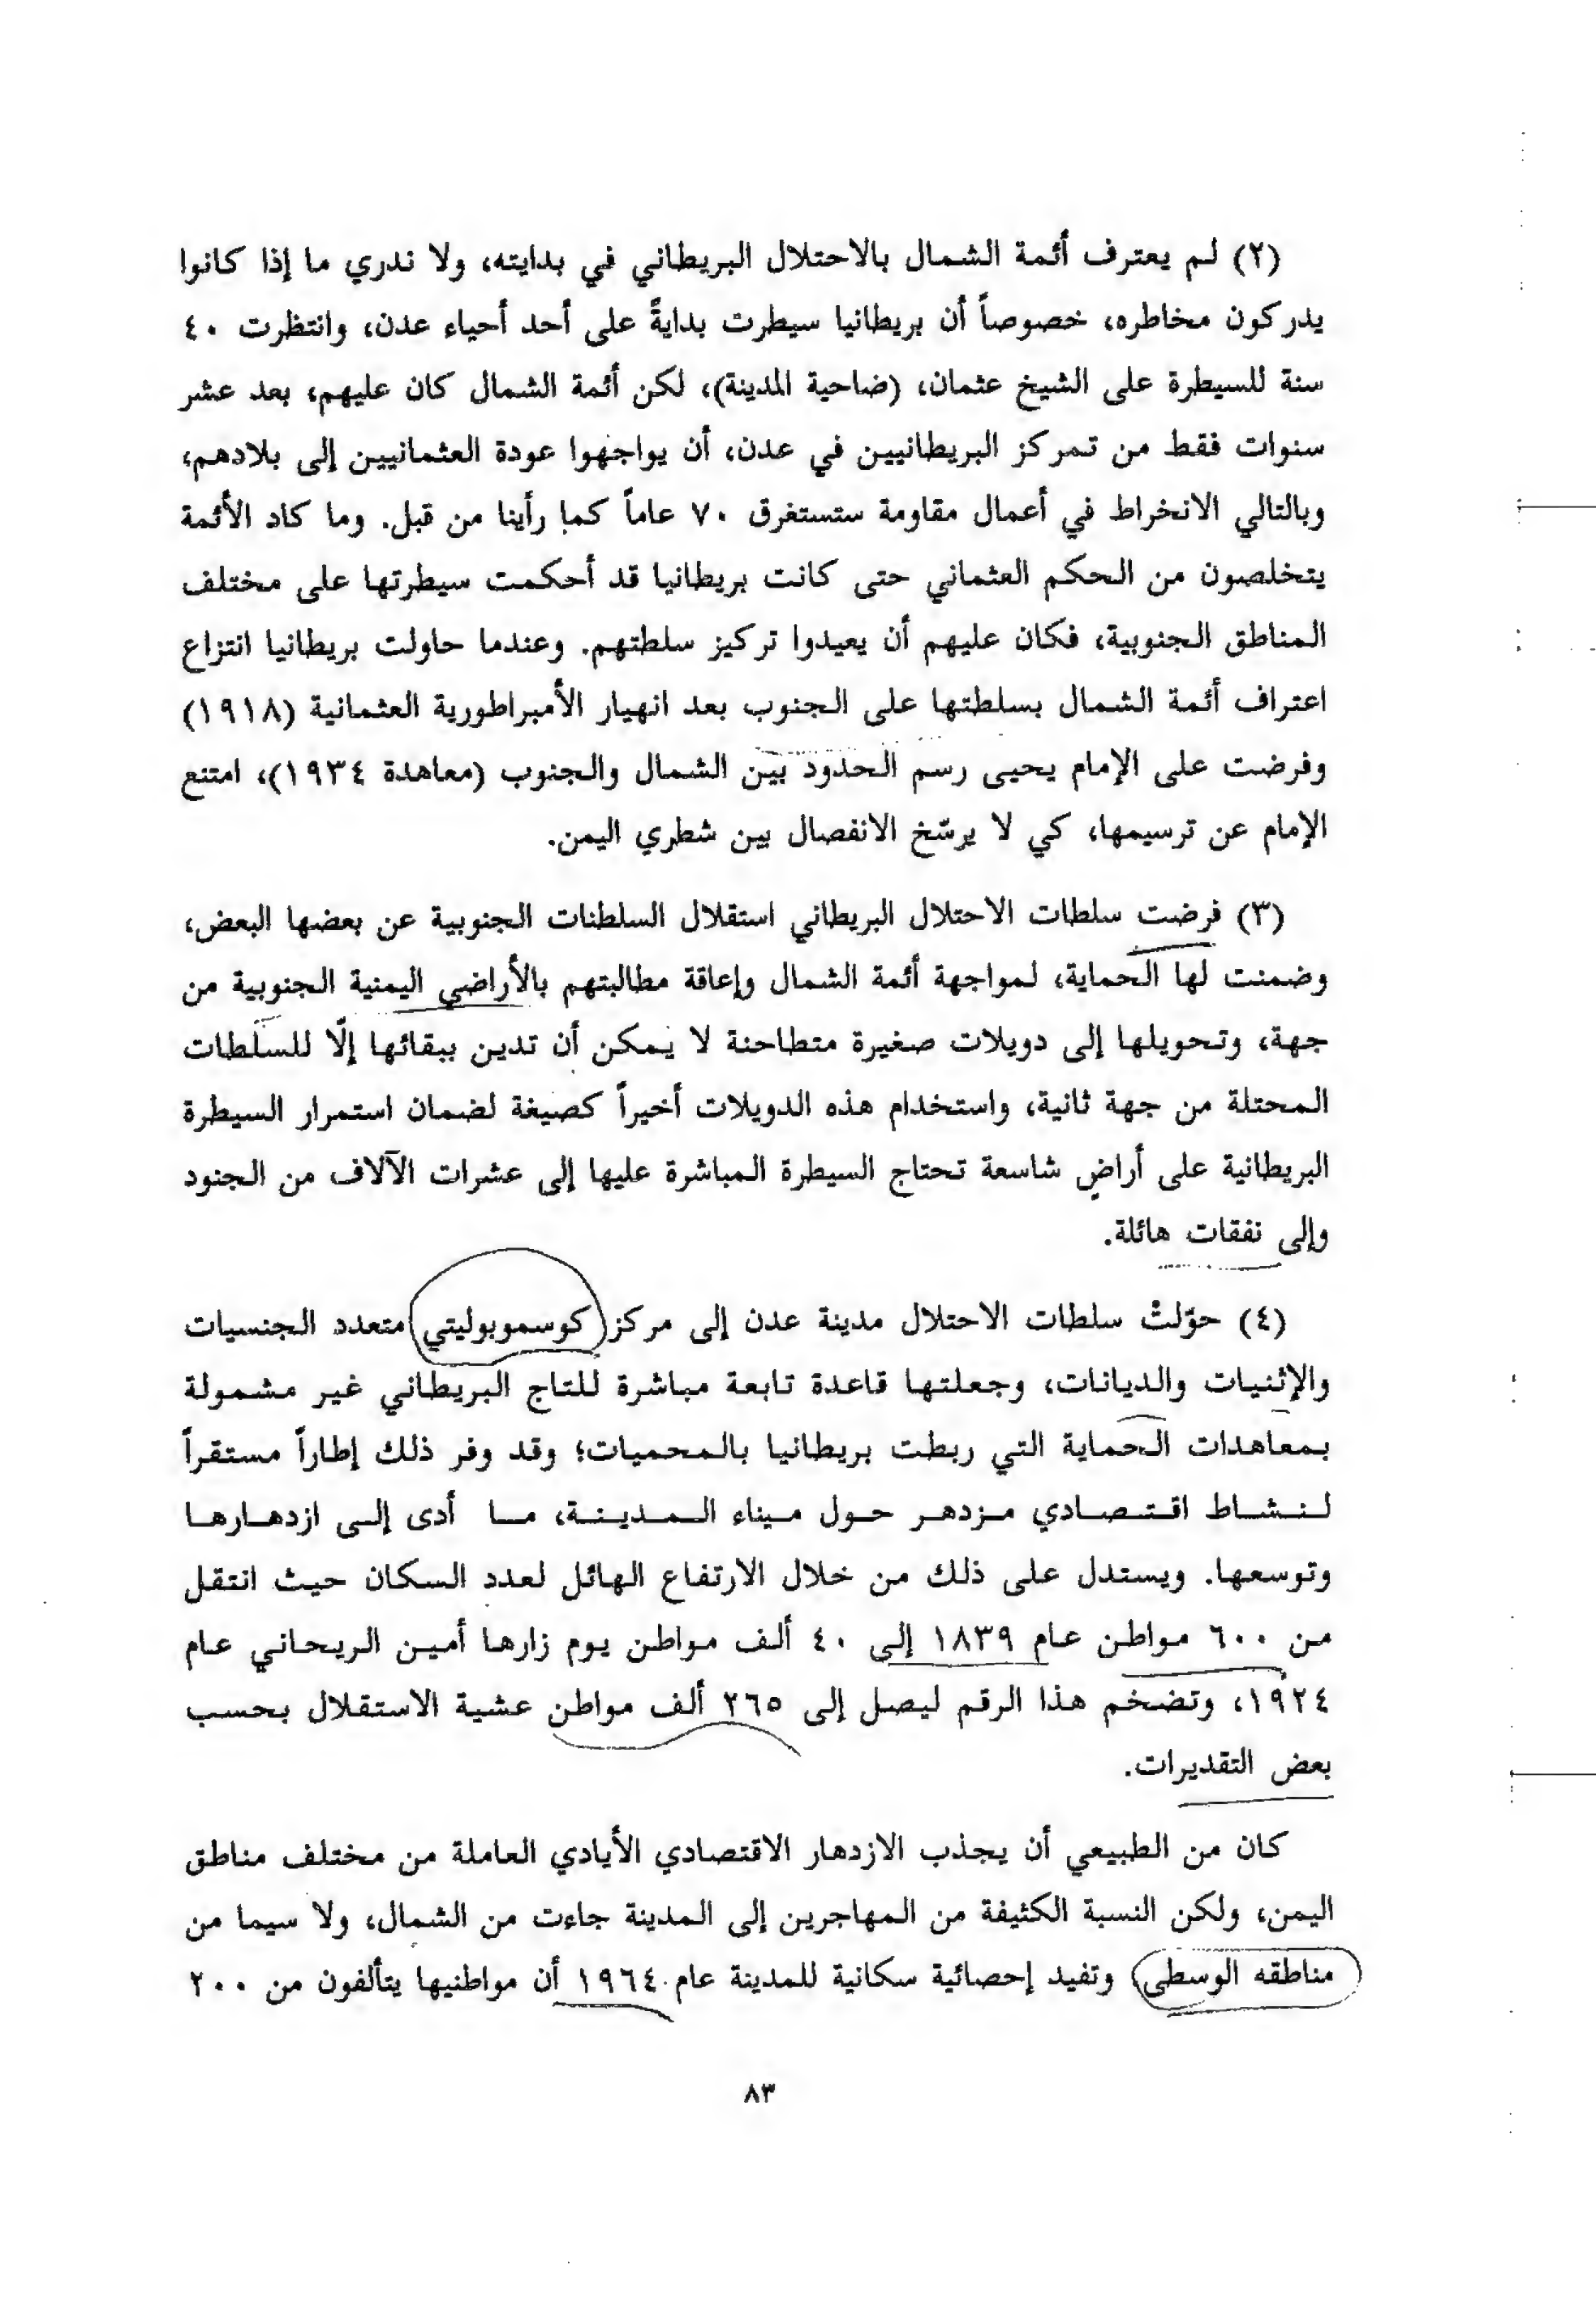 (٢) لم يعترف أئمة الشمال بالاحتلال البريطاني في بدايته، ولا ندري ما إذا كانوا
يدركون مخاطره، خصوصاً أن بريطانيا سيطرت بدايةً على أحد أحياء عدن، وانتظرت ٤٠
سنة للسيطرة على الشيخ عثمان، (ضاحية المدينة)، لكن أئمة الشمال كان عليهم، بعد عشر
سنوات فقط من تمركز البريطانيين في عدن، أن يواجهوا عودة العثمانيين إلى بلادهم،
وبالتالي الانخراط في أعمال مقاومة ستستغرق ٧٠ عاماً كما رأينا من قبل. وما كاد الأئمة
يتخلصون من الحكم العثماني حتى كانت بريطانيا قد أحكمت سيطرتها على مختلف
المناطق الجنوبية، فكان عليهم أن يعيدوا تركيز سلطتهم. وعندما حاولت بريطانيا انتزاع
اعتراف أئمة الشمال بسلطتها على الجنوب بعد انهيار الأمبراطورية العثمانية (١٩١٨)
وفرضت على الإمام يحيى رسم الحدود بين الشمال والجنوب (معاهدة ١٩٣٤)، امتنع
الإمام عن ترسيمها، كي لا يرسّخ الانفصال بين شطري اليمن.
(٣) فرضت سلطات الاحتلال البريطاني استقلال السلطنات الجنوبية عن بعضها البعض،
وضمنت لها الحماية، لمواجهة أئمة الشمال وإعاقة مطالبتهم بالأراضي اليمنية الجنوبية من
جهة، وتحويلها إلى دويلات صغيرة متطاحنة لا يمكن أن تدين ببقائها إلّا للسلطات
المحتلة من جهة ثانية، واستخدام هذه الدويلات أخيراً كصيغة لضمان استمرار السيطرة
البريطانية على أراضٍ شاسعة تحتاج السيطرة المباشرة عليها إلى عشرات الآلاف من الجنود
وإلى نفقات هائلة.
(٤) حوّلتْ سلطات الاحتلال مدينة عدن إلى مركز كوسموبوليتي متعدد الجنسيات
والإثنيات والديانات، وجعلتها قاعدة تابعة مباشرة للتاج البريطاني غير مشمولة
بمعاهدات الحماية التي ربطت بريطانيا بالمحميات؛ وقد وفر ذلك إطاراً مستقراً
لنشاط اقتصادي مزدهر حول ميناء المدينة، ما أدى إلى ازدهارها
وتوسعها. ويستدل على ذلك من خلال الارتفاع الهائل لعدد السكان حيث انتقل
من ٦٠٠ مواطن عام ١٨٣٩ إلى ٤٠ ألف مواطن يوم زارها أمين الريحاني عام
١٩٢٤، وتضخم هذا الرقم ليصل إلى ٢٦٥ ألف مواطن عشية الاستقلال بحسب
بعض التقديرات.
كان من الطبيعي أن يجذب الازدهار الاقتصادي الأيادي العاملة من مختلف مناطق
اليمن، ولكن النسبة الكثيفة من المهاجرين إلى المدينة جاءت من الشمال، ولا سيما من
مناطقه الوسطى وتفيد إحصائية سكانية للمدينة عام ١٩٦٤ أن مواطنيها يتألفون من ٢٠٠
٨٣